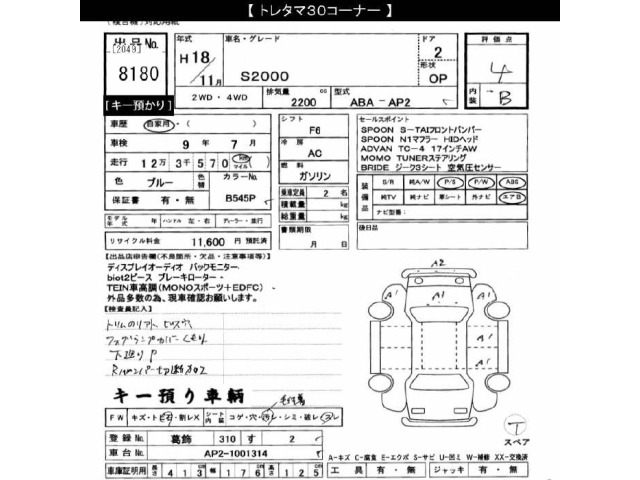 【 トレタマ30コーナー 】
(複合機)対応用紙
出品No.
[2049]
8180
年式
H 18
11月
車名・グレード
S2000
ドア
2
形状
OP
評価点
4
内装 B
2WD ・ 4WD
排気量 2200 cc
型式 ABA - AP2
[ キー預かり ]
車歴 自家用 ・ ( )
車検 9 年 7 月
走行 12万 3千 570 km マイル
色 ブルー
色替
カラーNo. B545P
保証書 有 ・ 無
シフト F6
冷房 AC
燃料 ガソリン
乗車定員 2 名
積載量 kg
総重量 kg
書類期限
月 日
セールスポイント
SPOON S-TAIフロントバンパー
SPOON N1マフラー HIDヘッド
ADVAN TC-4 17インチAW
MOMO TUNERステアリング
BRIDE ジーク3シート 空気圧センサー
装備品
S/R 純A/W P/S P/W ABS
純TV 純ナビ 革シート 外ナビ エアB
ナビ型番：
後日品
モデル年式 年 ハンドル 左・右 ディーラー・並行
リサイクル料金 11,600 円 預託済
【出品店申告欄(不良箇所・欠品・注意事項等)】
ディスプレイオーディオ バックモニター
biot2ピース ブレーキローター
TEIN車高調(MONOスポーツ+EDFC)
外品多数の為、現車確認お願いします。
【検査員記入】
下廻り P
キー預り車輌
FW キズ・トビ石・割レX シート内装 コゲ・穴・汚レ・シミ・破レ・スレ
登録No. 葛飾 310 す 2
車台No. AP2-1001314
車庫証明用 長さ 413 幅 176 高さ 125
A2
A1
A1
A1
A1
A1
T
スペア
A-キズ C-腐食 E-エクボ S-サビ U-凹ミ W-補修 XX-交換済
工具 有・無 ジャッキ 有・無